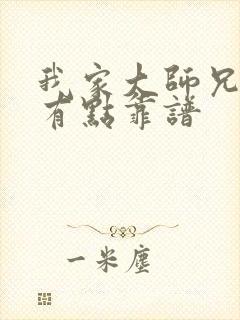 我家大師兄
有點靠譜
一米塵